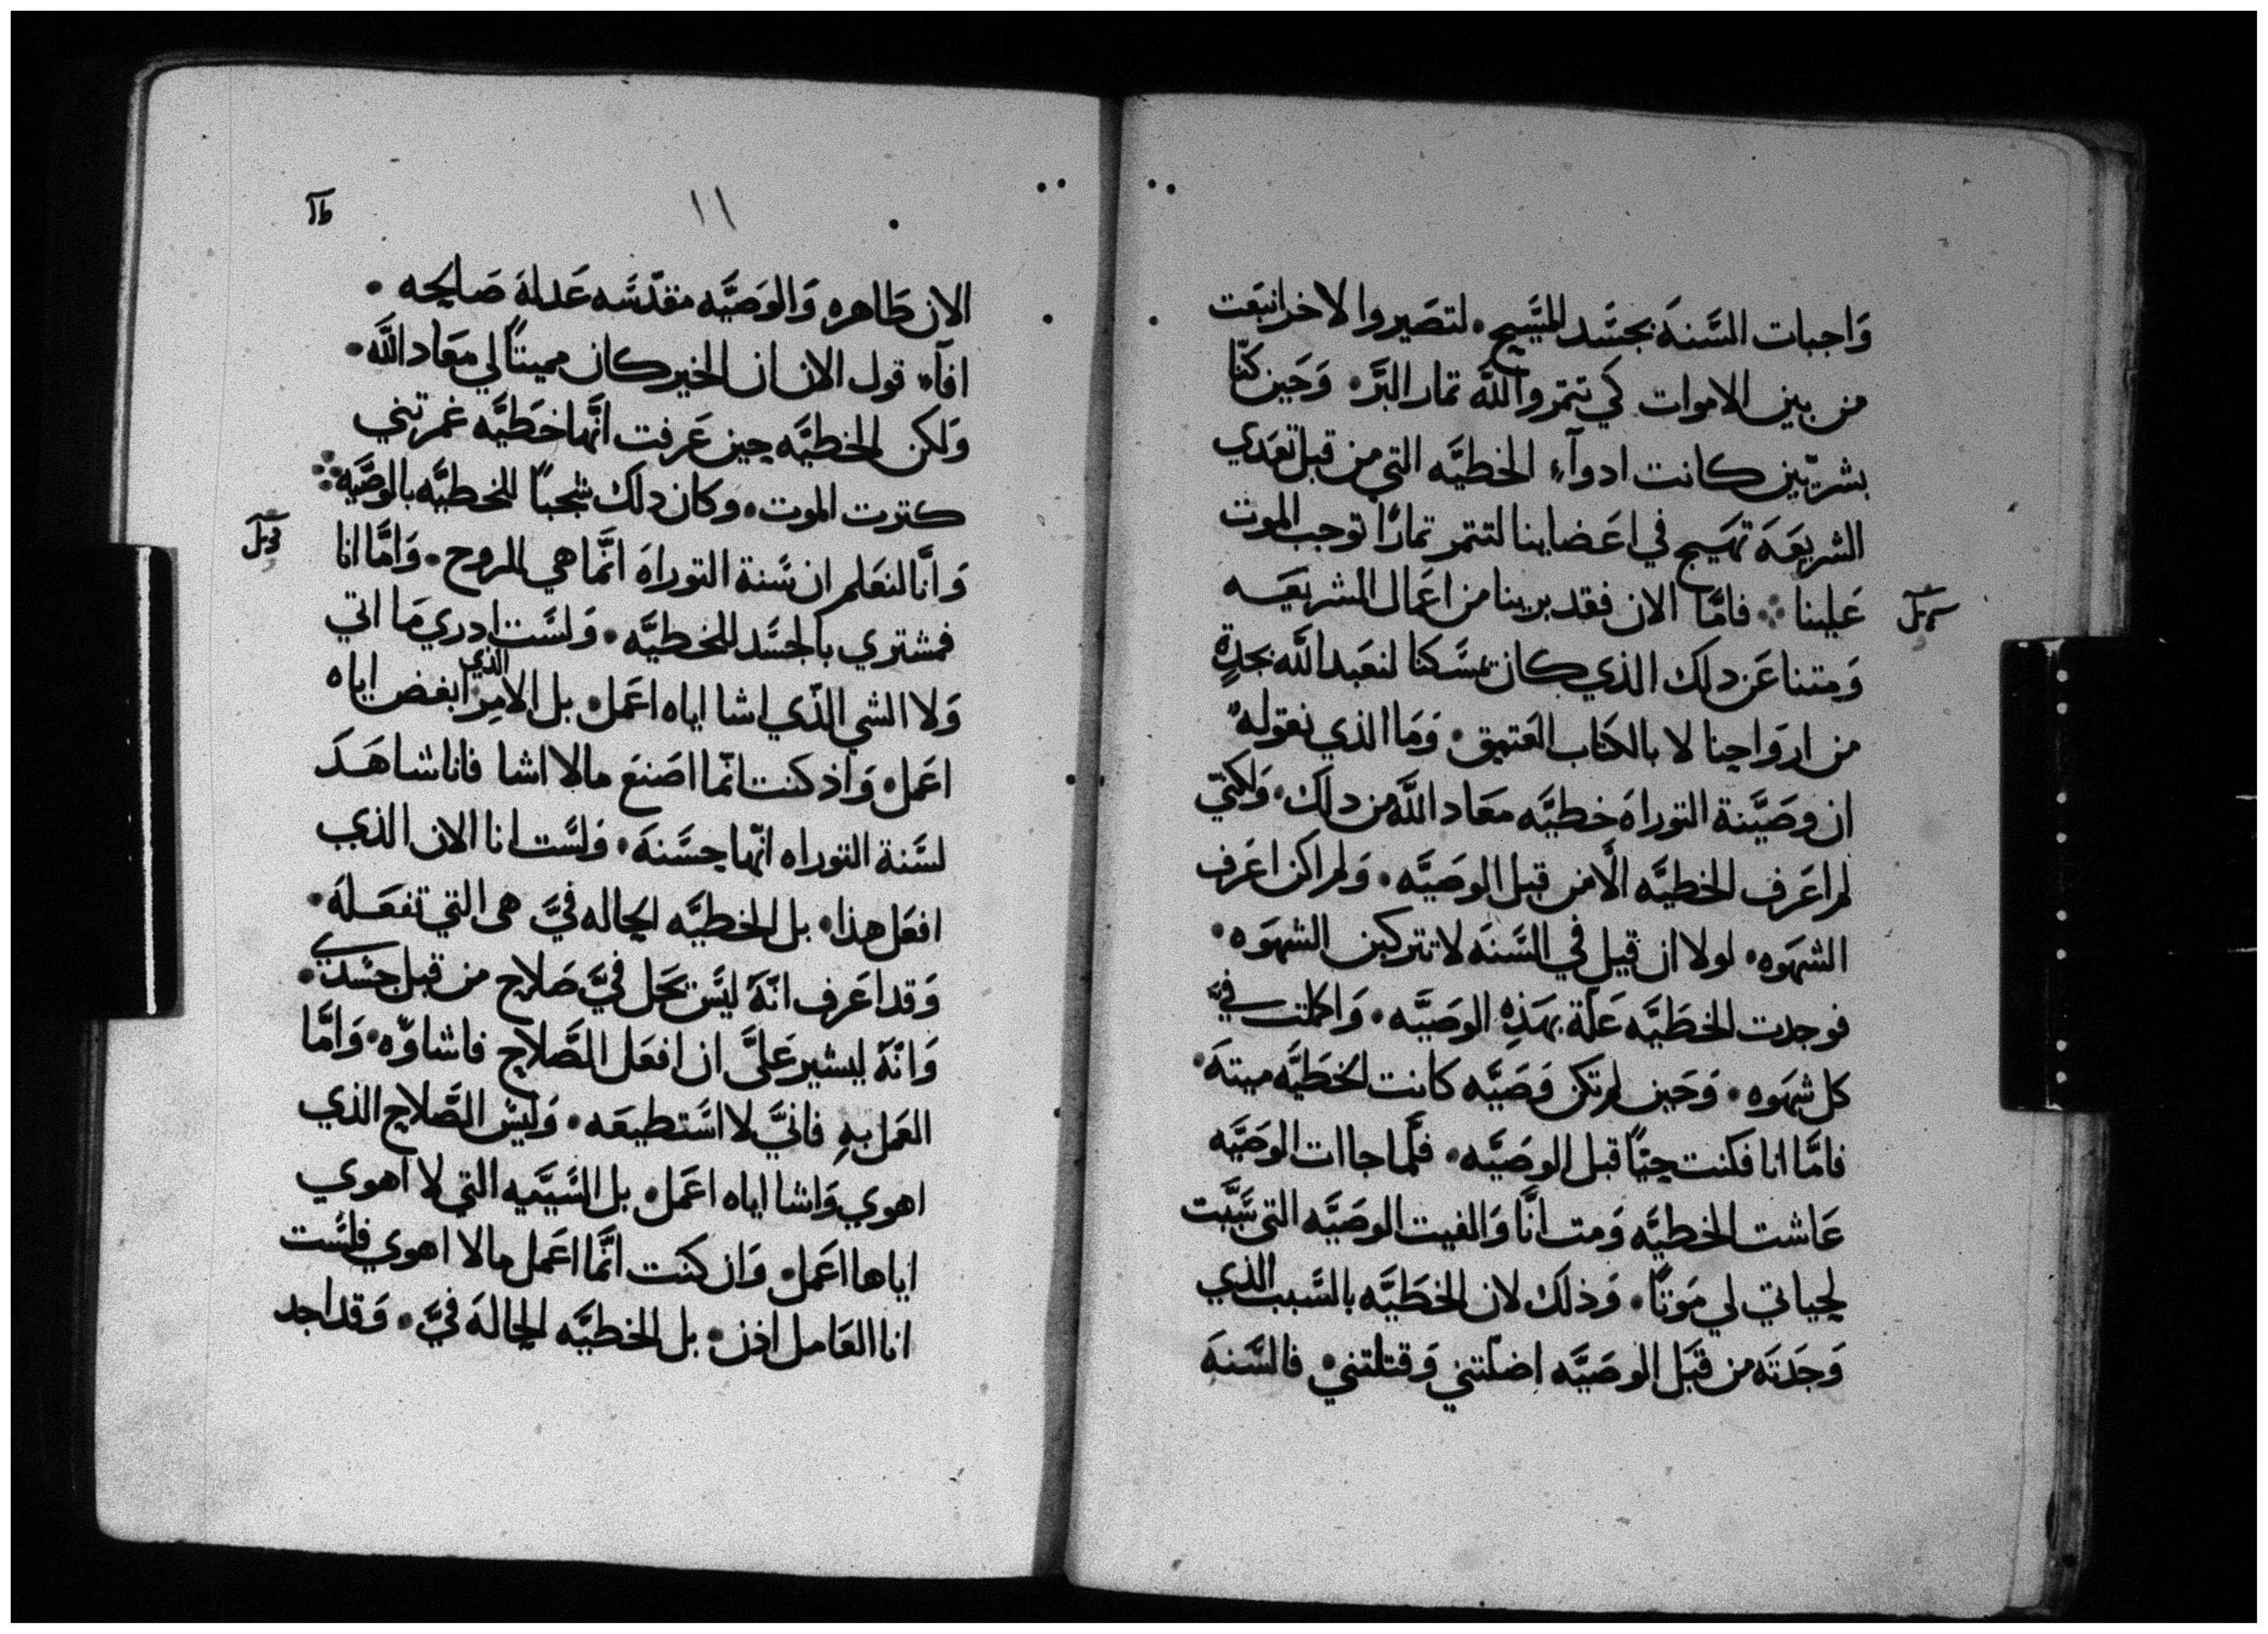 وَاجبات السَّنةَ بجسَّد المسَّيح • لتصَيروا لاخر انبعَت
من بين الاموات كي تتمروا للَّه تمار البرَّ • وَحَين كنّا
بشريّين كانت ادوآء الخطيَّه التي من قبل تعَدي
الشريعَهَ تهَيج في اعَضاينا لتتمر تمارًا توجب الموت
عَلينا ⁘ فامَّا الان فقد برينا من اعَمال الشريعَه
وَمتنا عَن دلك الذي كان يمسَّكنا لنعَبد اللَّه بجدةٍ
من اروَاحنا لا بالكتاب العَتيق • وَمَا الذي نعَوله •
ان وصَيَّنة التوراهَ خطيَّه معَاد اللَّه من دلك • وَلكنّي
لم اعَرف الخطيَّه الَّا من قبل الوصَيَّه • وَلم اكن اعَرف
الشهَوه • لولا ان قيل في السَّنهَ لا تتركبن الشهوَه •
فوجدت الخطَيَّه عَلّة بهَذهِ الوصَيَّه • وَاكملت فيَّ
كل شهَوه • وَحَين لم تكن وَصَيَّه كانت الخطَيَّه ميتهَ •
فامَّا انا فكنت حيًّا قبل الوصَيَّه • فلَّما جاات الوصَيَّه
عَاشت الخطيَّه وَمت انَّا وَالفيت الوصَيَّه التي سَّببَّت
لحياتي لي مَوتًا • وَذلك لان الخطَيَّه بالسَّبب الذي
وَجدَته من قبَل الوصَيَّه اضلّتني وَقتلتني • فالسَّنهَ
١١
الان طَاهره وَالوَصَيَّه مقدّسَّه عَدلهَ صَالحه •
افآء قول الان ان الخير كان مميتًا لي معَاد اللَّه •
وَلكن الخطيَّه حين عَرفت انَّها خَطيَّه غمرتني
كترت الموت • وكان دلك شجبًا للخطيَّه بالوصَّيَه ⁘
وَانَّا لنعَلم ان سَّنة التوراهَ انَّما هي للروح • وَامَّا انا
فمشتري بالجسَّد للخطيَّه • وَلسَّت ادري مَا اتي
وَلا الشي الذّي اشا اياه اعَمل • بل الامر الذي ابغض اياه
اعَمل • وَاذ كنت انّما اصَنع مالا اشا فانا شاهَدَ
لسَّنة التوراه انّها حسَّنهَ • وَلسَّت انا الان الذي
افعَل هذا • بل الخطيَّه الحَاله فيَّ هى التي تفعَلهَ •
وَقد اعَرف انّهَ ليسَّ يحَل فيَّ صَلاح من قبل جسَّدي •
وَانّهَ ليشير عَلىَّ ان افعَل الصَّلاح فاشاوَّه • وَامَّا
العَمل بهِ فانيَّ لا اسَّتطيعَه • وَليسَّ الصَّلاح الذي
اهوي وَاشا اياه اعَمل • بل السَّيَّيه التي لا اهوي
اياها اعَمل • وَان كنت انَّما اعَمل مالا اهوي فلسَّت
انا العَامل اذن • بل الخطيَّه الحالهَ فيَّ • وَقد اجد